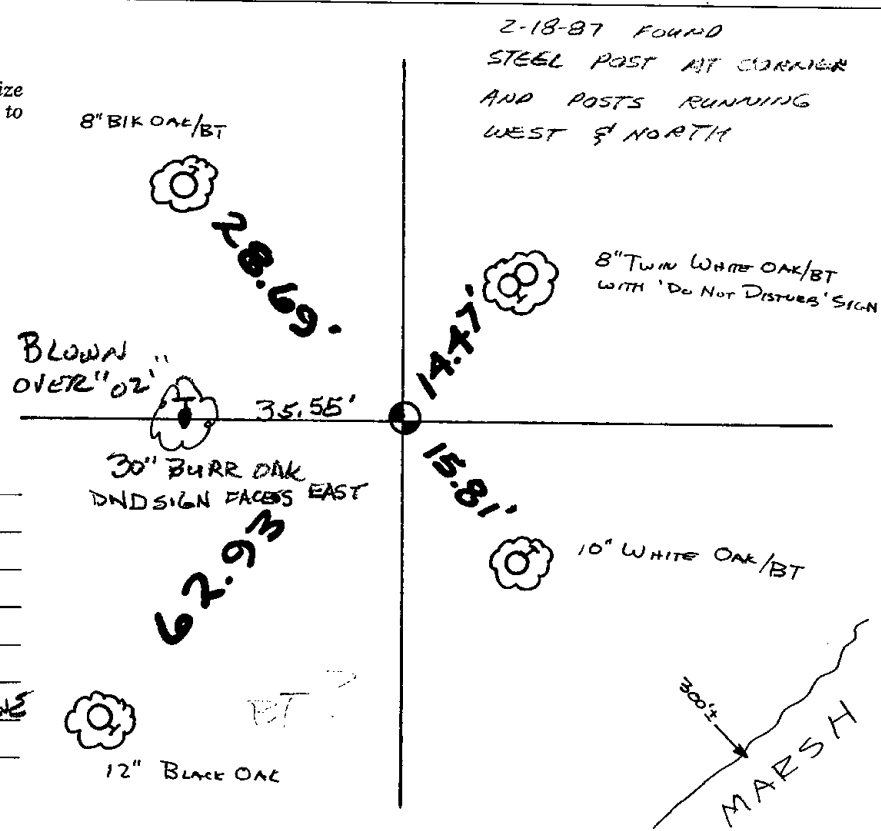 2-18-87 FOUND
STEEL POST AT CORNER
AND POSTS RUNNING
WEST & NORTH
ize
to
8" BlK OAK/BT
28.69'
8" TWIN WHITE OAK/BT
WITH 'DO NOT DISTURB' SIGN
14.47'
BLOWN
OVER "02"
35.55'
30" BURR OAK
DND SIGN FACES EAST
15.81'
62.93
10" WHITE OAK/BT
BT ?
12" BLACK OAK
300'±
MARSH